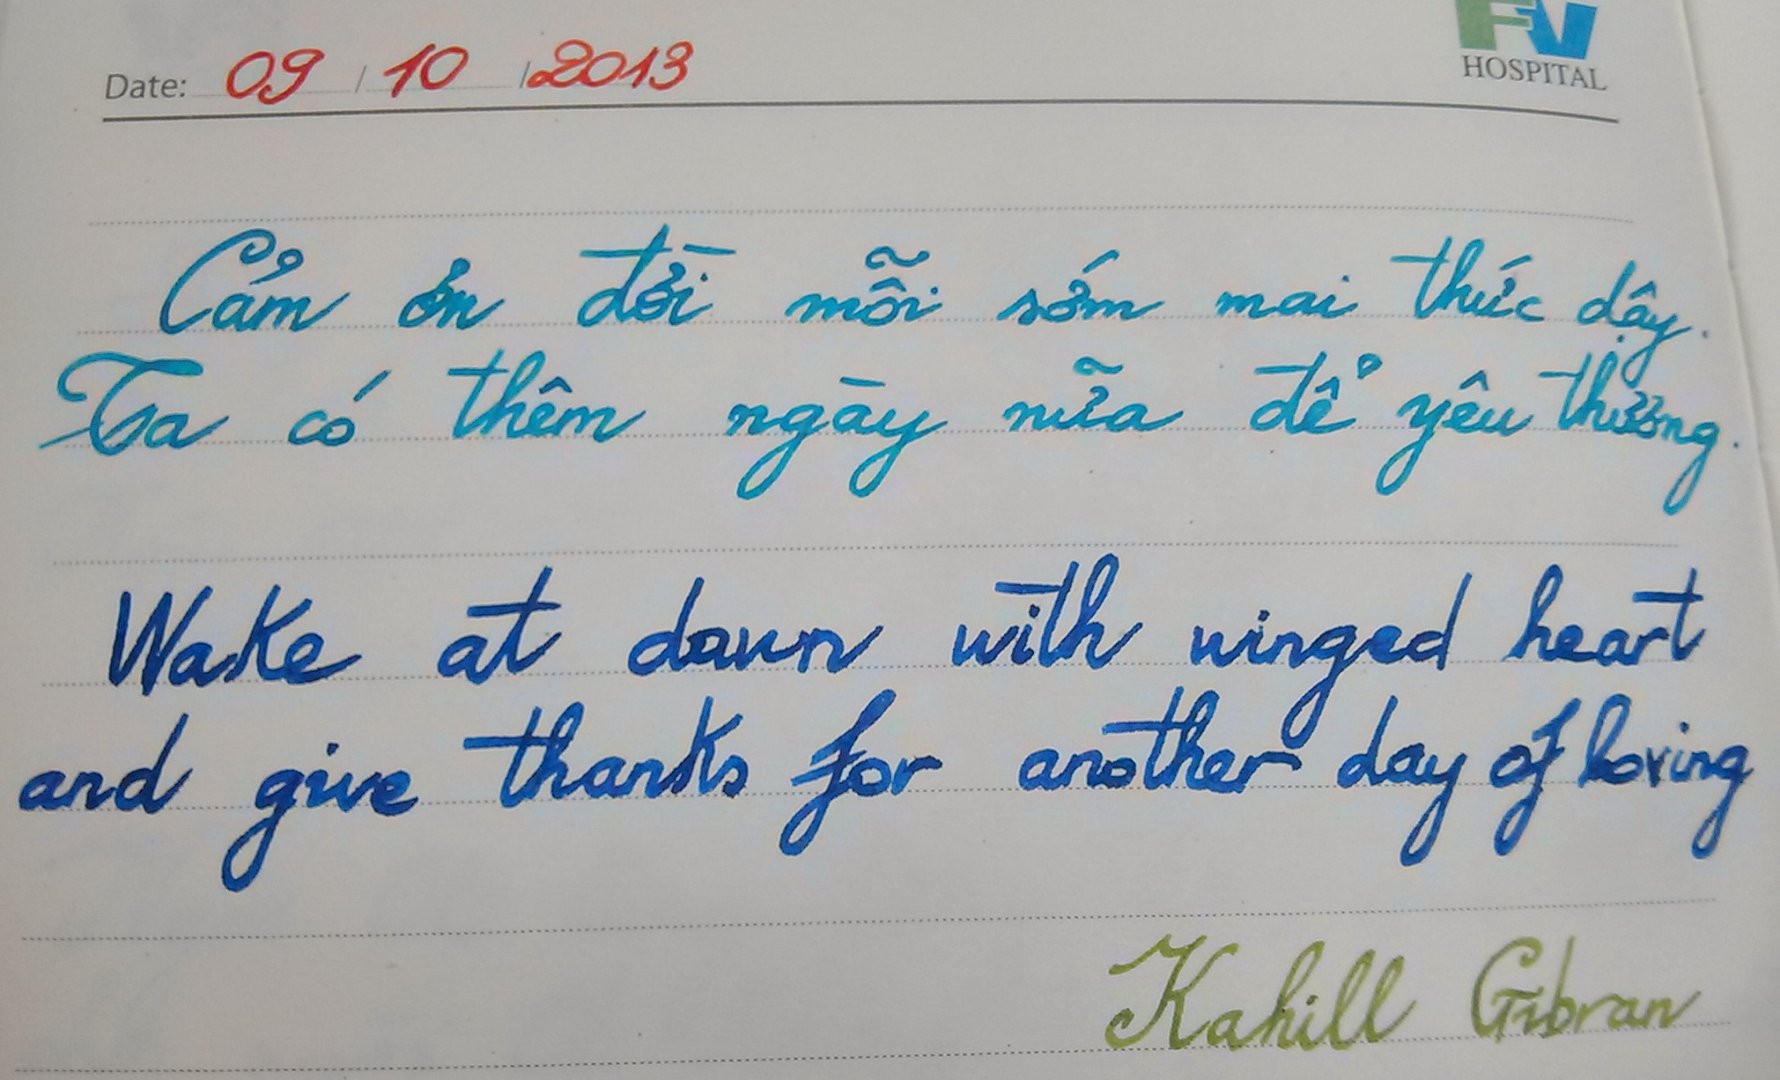 FV
HOSPITAL
Date: 09 / 10 / 2013
Cảm ơn đời mỗi sớm mai thức dậy.
Ta có thêm ngày nữa để yêu thương.
Wake at dawn with winged heart
and give thanks for another day of loving
Kahill Gibran